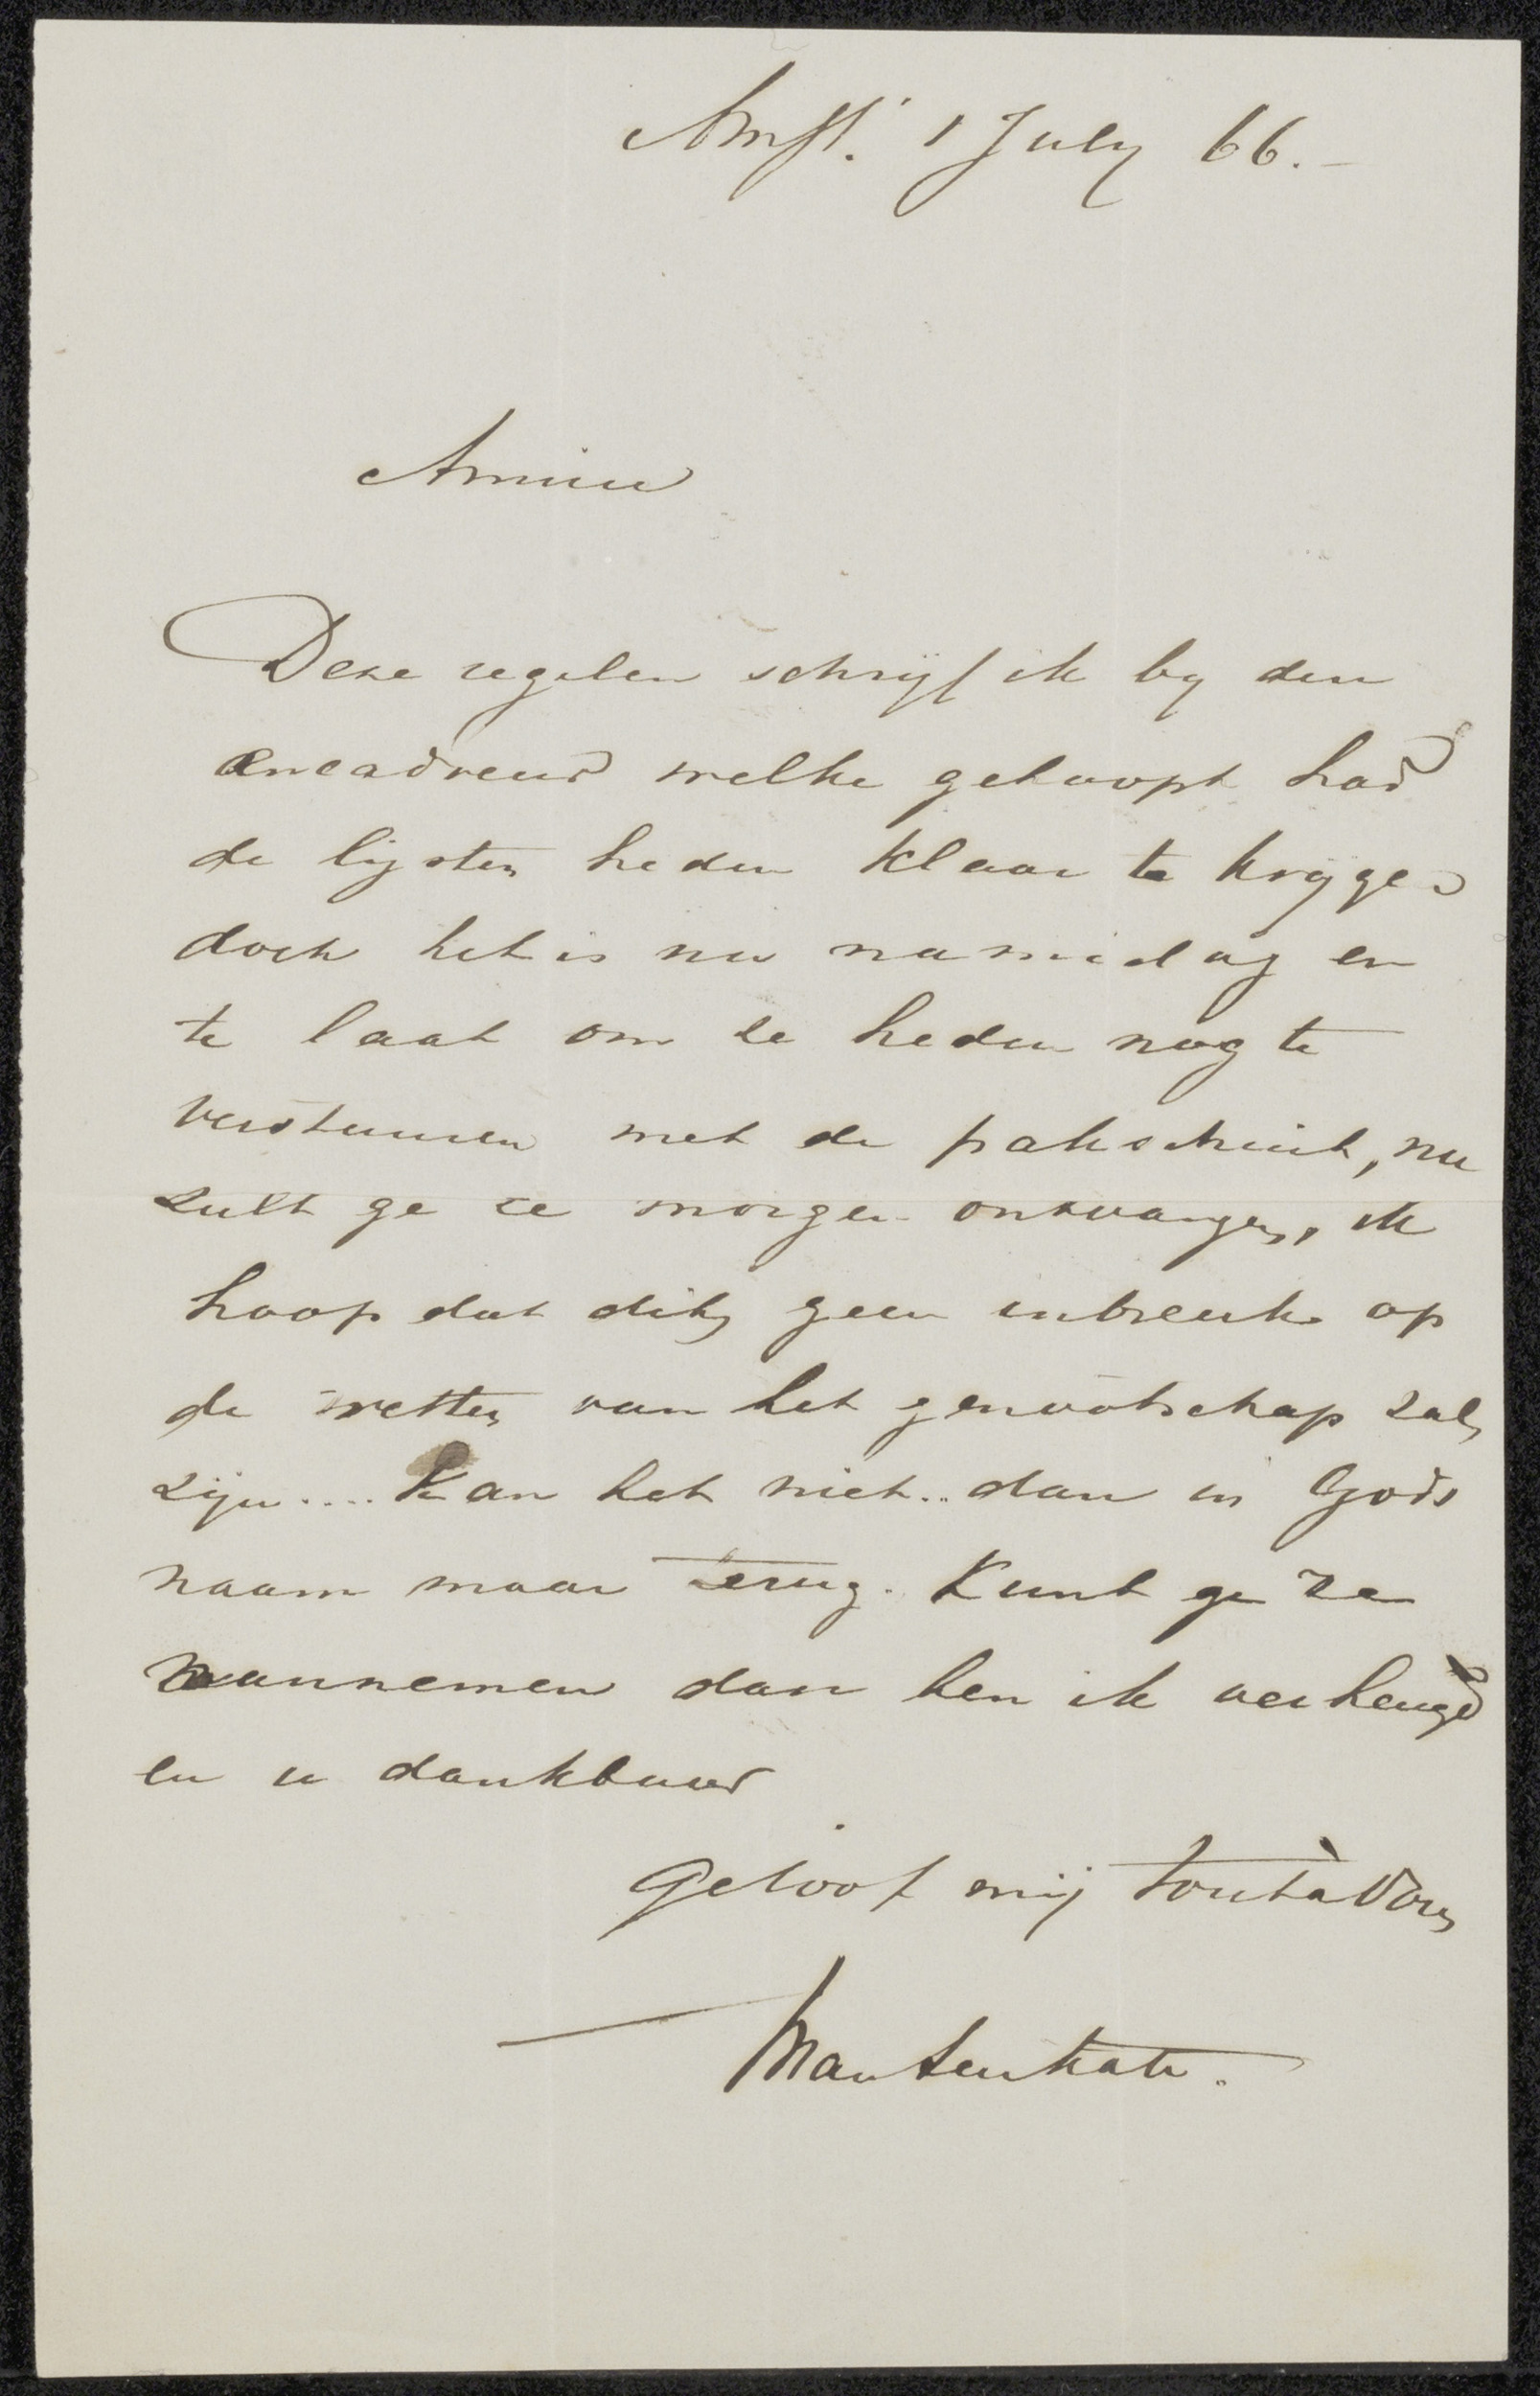 Amst. 1 July 66.-
Amice
Deze regelen schrijf ik by den
encadreur welke gehoopt had
de lijsten heden klaar te krijgen
doch het is nu namidag en
te laat om ze heden nog te
verstuuren met de pakschuit, nu
zult ge ze morgen ontvangen, ik
hoop dat dit geen inbreuk op
de wetten van het genootschap zal
zijn.... Kan het niet.. dan in Gods
naam maar terug. Kunt ge ze
aannemen dan ben ik verheugd
en u dankbaar
Geloof mij tout à vous
Mari ten Kate.